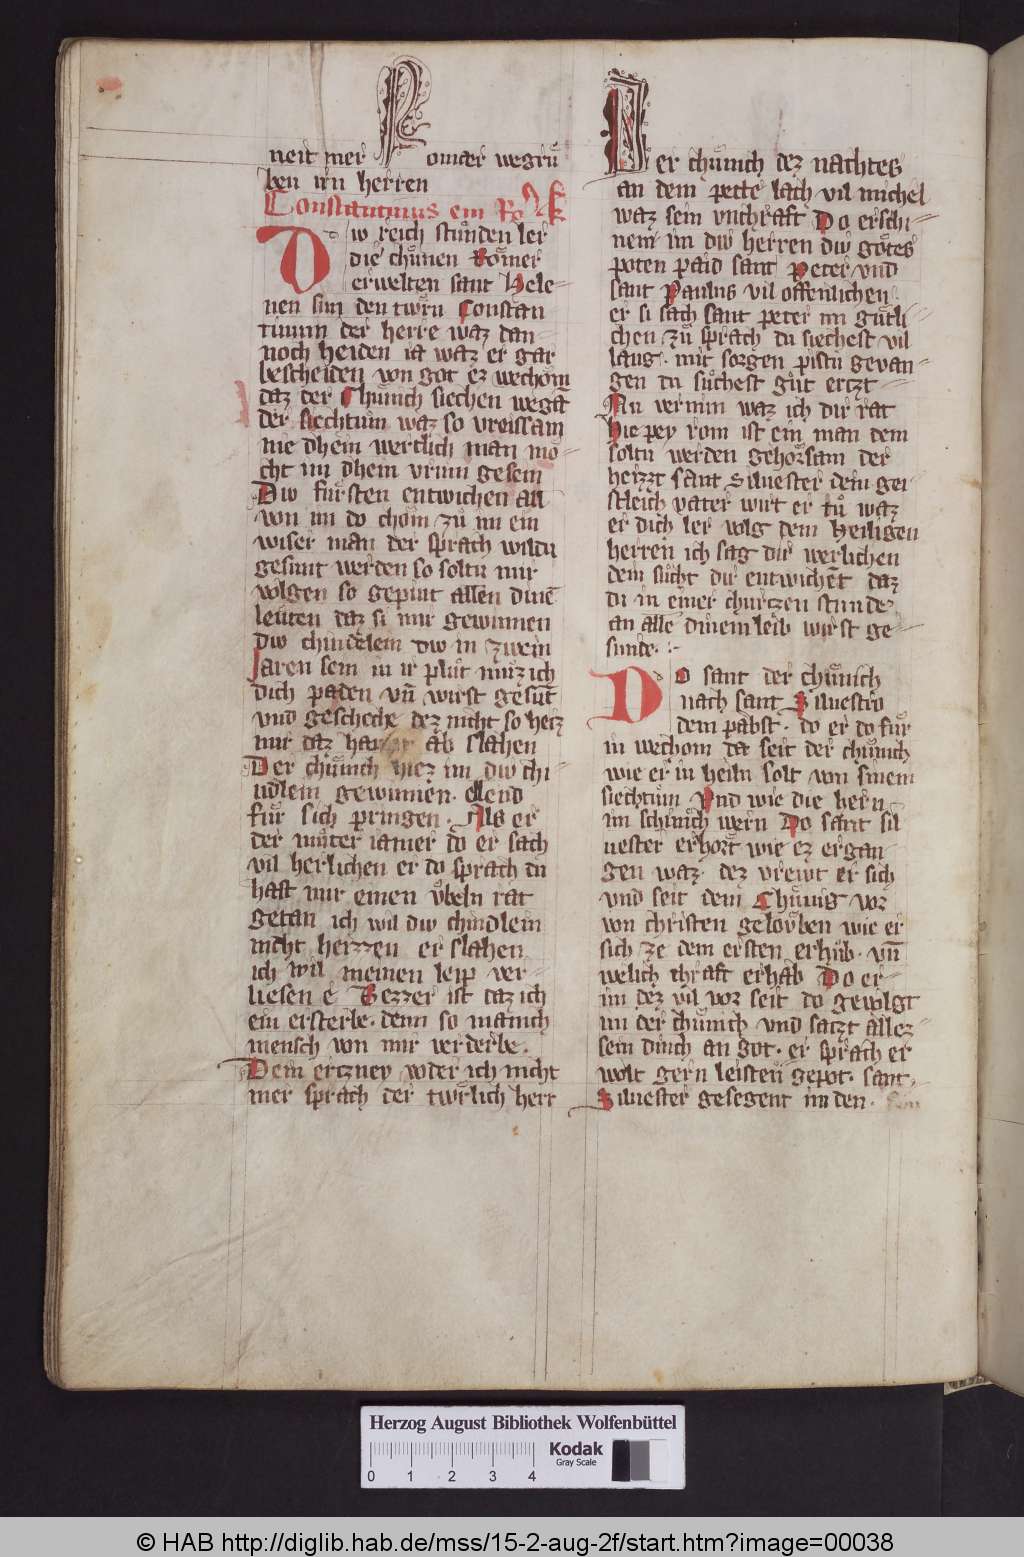 neit mer Romær wegrů
ben irn herren
Constantinus ein Ro k
Diw reich stůnden ler
die chůnen Rŏmer
erwelten sant Hele
nen sun den twrn Constan
tinum der herre waz dan
noch heiden ia waz er gar
bescheiden von got ez wechom
daz der Chůnich siechen wegā
der siechtum waz so vreissam
nie dhein wertlich man mŏ
cht im dhein vrum gesein
Diw fůrsten entwichen all
von im do chom zů im ein
wiser man der sprach wildu
gesunt werden so soltu mir
volgen so gepiut allen dinē
leuten daz si mir gewinnen
diw chindelein diw in zwein
Jaren sein in ir plůt můz ich
dich paden vn̄ wirst gesūt
vnd geschehe dez nicht so heiz
mir daz ab slahen
Der chůnich hiez im diw chi
ndlein gewinnen ellend
fůr sich pringen. Als er
der můter iamer do er sach
vil herlichen er do sprach du
hast mir einen ůbeln rat
getan ich wil diw chindlein
nicht heizzen er slahen
ich wil meinen leip ver
liesen e Bezzer ist daz ich
ein ersterbe. denn so manich
mensch von mir verderbe.
Dein erczney wider ich nicht
mer sprach der twrlich herr
Der chůnich dez nachtes
an dem pette lach vil michel
waz sein vnchraft Do erschi
nem im diw herren diw gŏtes
poten paid sant Peter vnd
sant Paulus vil offenlichen
er si sach sant peter im gůtli
chen zů sprach du siechest vil
lang. mit sorgen pistu gevan
gen du sůchest gůt erczt
Nu vernim waz ich dir rat
Hie pey rom ist ein man dem
soltu werden gehorsam der
heizzt sant Siluester dein gei
stleich vater wirt er tů waz
er dich ler volg dem heiligen
herren ich sag dir werlichen
dein sůcht dir entwichēt daz
du in einer churczen stunde
an alle dinem leib wirst ge
sunde.
Do sant der chůnich
nach sant Siluestro
dem pabst. do er do fůr
in wechom da seit der chůnich
wie er in heiln solt von sinem
siechtům Vnd wie die hern
im schinich wern Do sant sil
uester erhort wie ez ergan
gen waz. dez vrewt er sich
vnd seit dem Chůnig vor
von christen gelouben wie er
sich ze dem ersten erhůb. vn̄
welich chraft er hab Do er
im dez vil vor seit do gevolgt
im der chůnich vnd saczt allez
sein dinch an got. er sprach er
wolt gern leisten gepot. sant
Siluester gesegent im den.
Herzog August Bibliothek Wolfenbüttel
0 1 2 3 4
Kodak
Gray Scale
© HAB http://diglib.hab.de/mss/15-2-aug-2f/start.htm?image=00038